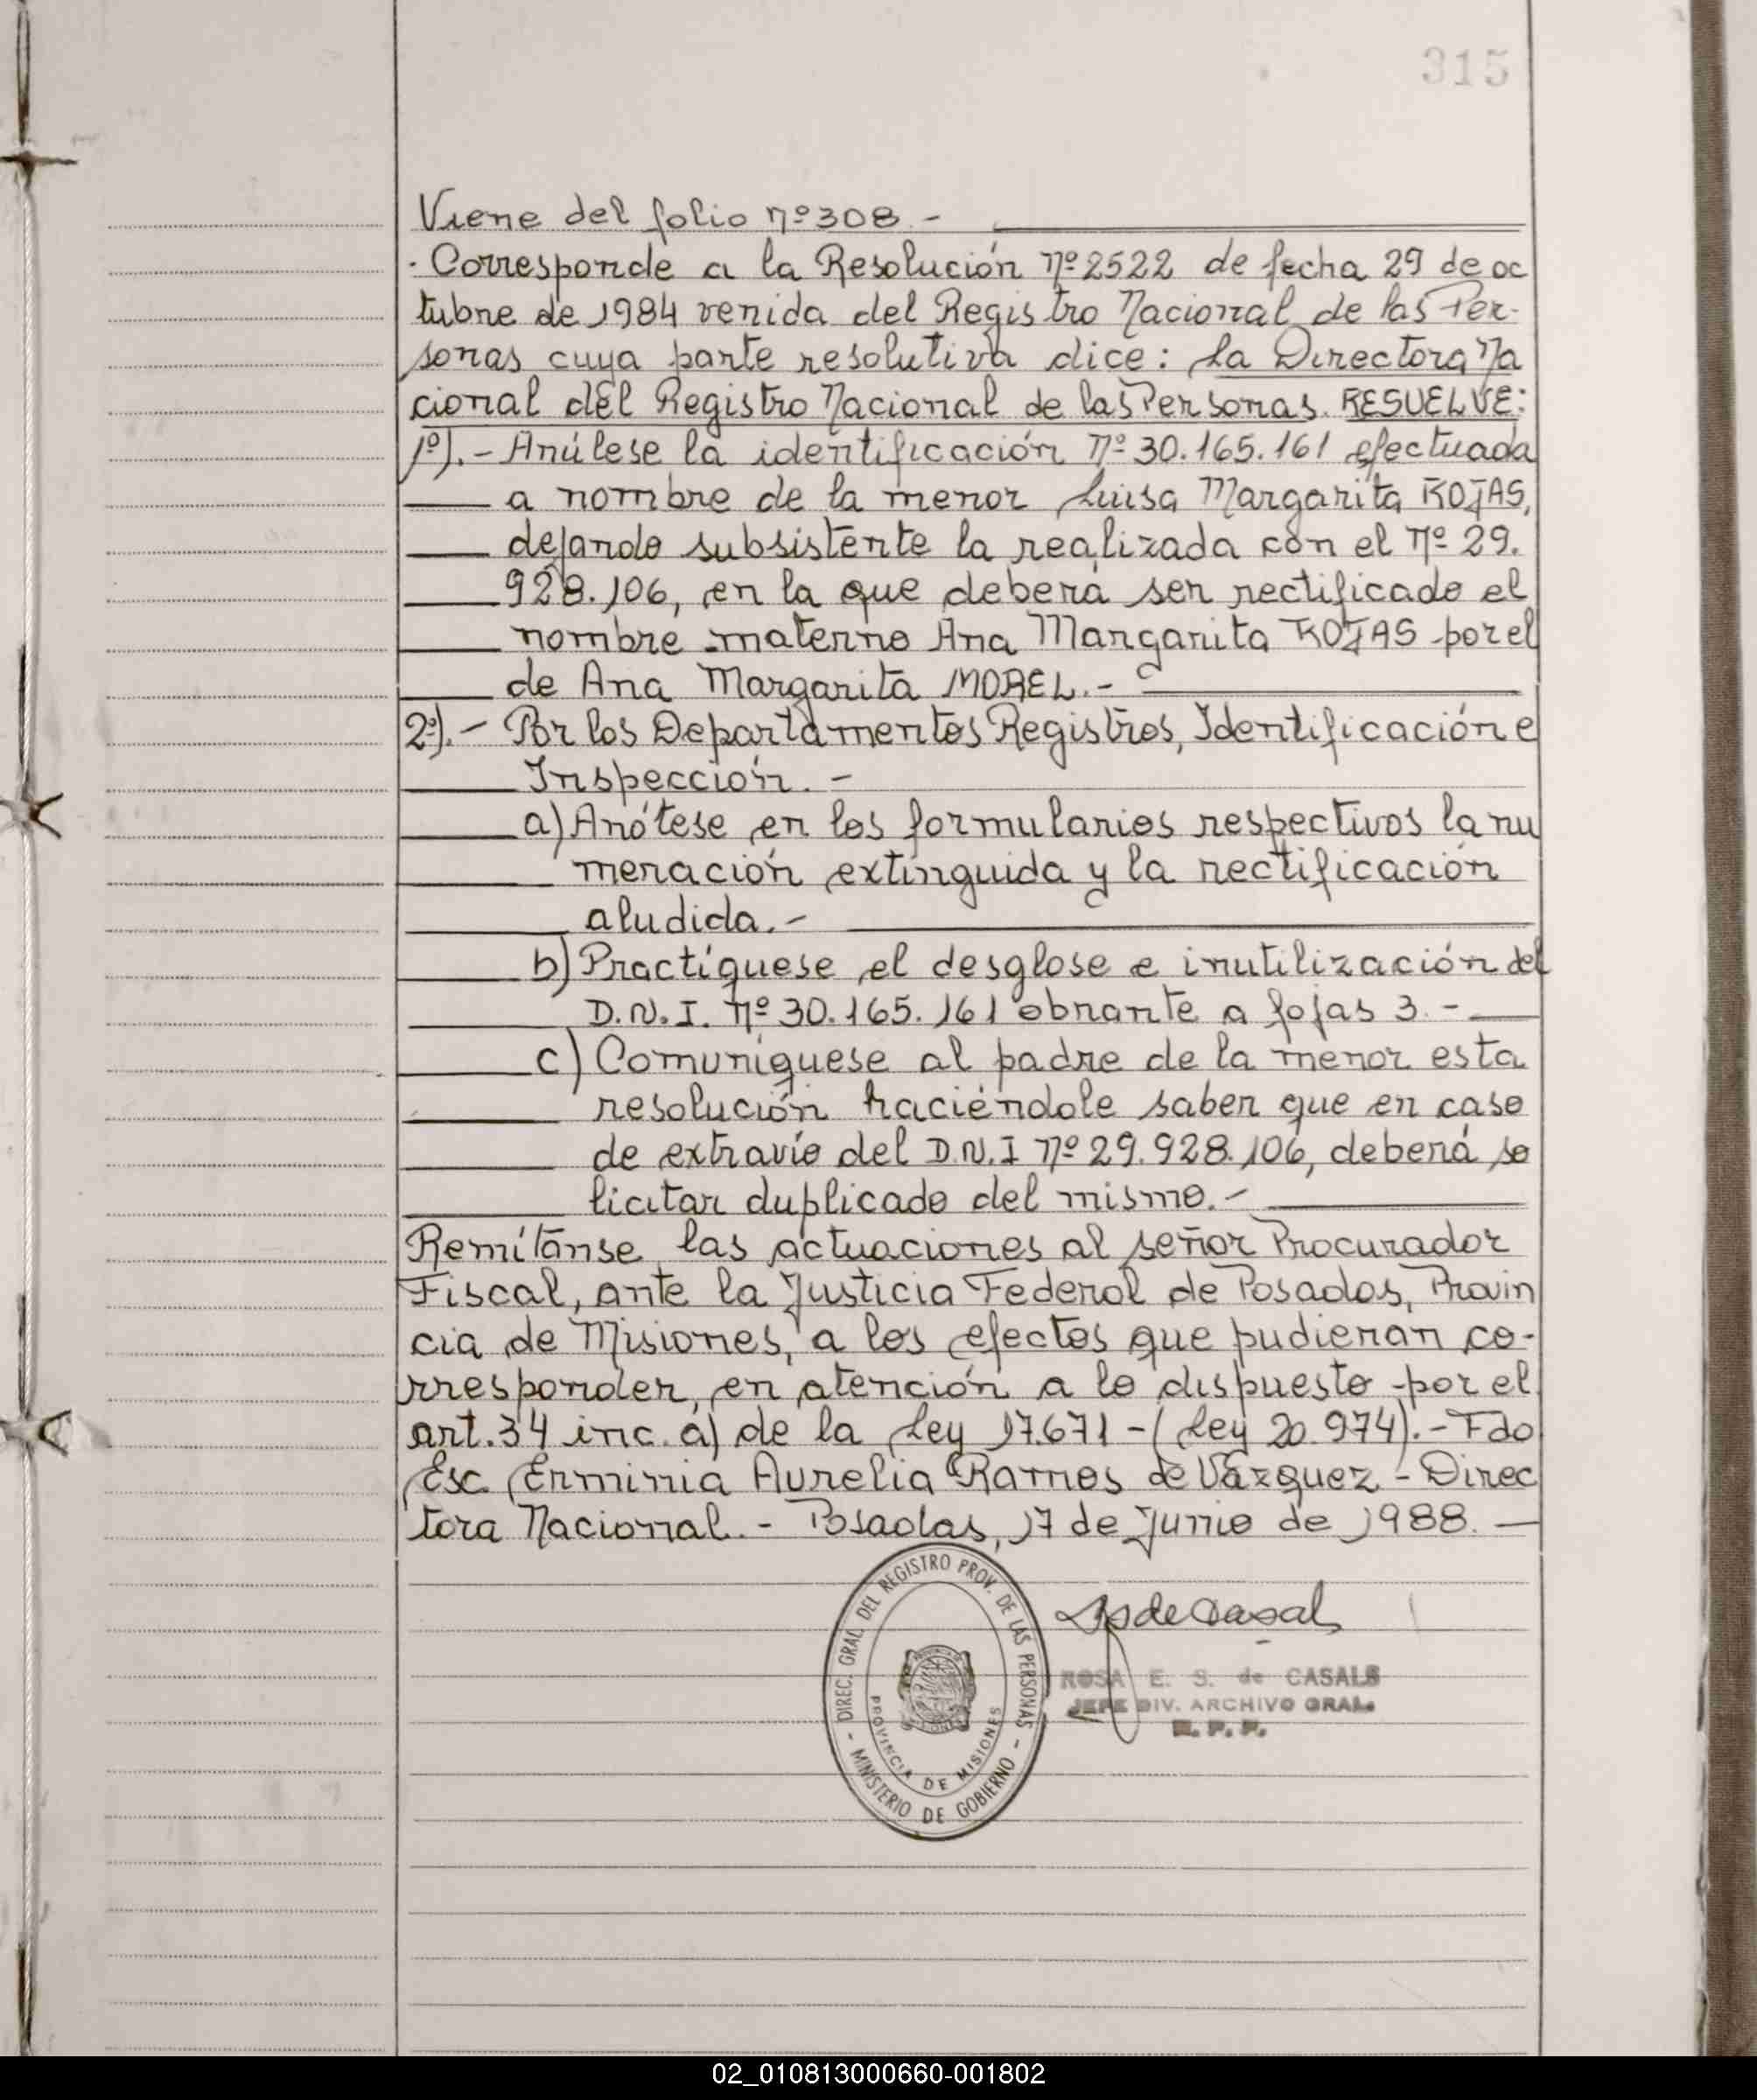 315
Viene del folio nº 308.-
Corresponde a la Resolución nº 2522 de fecha 29 de oc
tubre de 1984 venida del Registro Nacional de las Per-
sonas cuya parte resolutiva dice: La Directora Na
cional del Registro Nacional de las Personas. RESUELVE:
1º).- Anúlese la identificación nº 30.165.161 efectuada
a nombre de la menor Luisa Margarita ROJAS,
dejando subsistente la realizada con el nº 29.
928.106, en la que deberá ser rectificado el
nombre materno Ana Margarita ROJAS por el
de Ana Margarita MOREL.-
2º).- Por los Departamentos Registros, Identificación e
Inspección.-
a) Anótese en los formularios respectivos la nu
meración extinguida y la rectificación
aludida.-
b) Practíquese el desglose e inutilización del
D.N.I. nº 30.165.161 obrante a fojas 3.-
c) Comuníquese al padre de la menor esta
resolución haciéndole saber que en caso
de extravío del D.N.I nº 29.928.106, deberá so
licitar duplicado del mismo.-
Remítanse las actuaciones al señor Procurador
Fiscal, ante la Justicia Federal de Posadas, Provin
cia de Misiones, a los efectos que pudieran co-
rresponder, en atención a lo dispuesto por el
art. 34 inc. a) de la Ley 17.671 - (Ley 20.974).- Fdo
Esc. Erminia Aurelia Ramos de Vázquez - Direc
tora Nacional.- Posadas, 17 de Junio de 1988.
- DIREC. GRAL. DEL REGISTRO PROV. DE LAS PERSONAS -
MINISTERIO DE GOBIERNO
PROVINCIA DE MISIONES
de Casals
ROSA E. S. de CASALS
JEFE DIV. ARCHIVO GRAL.
R. P. P.
02_010813000660-001802